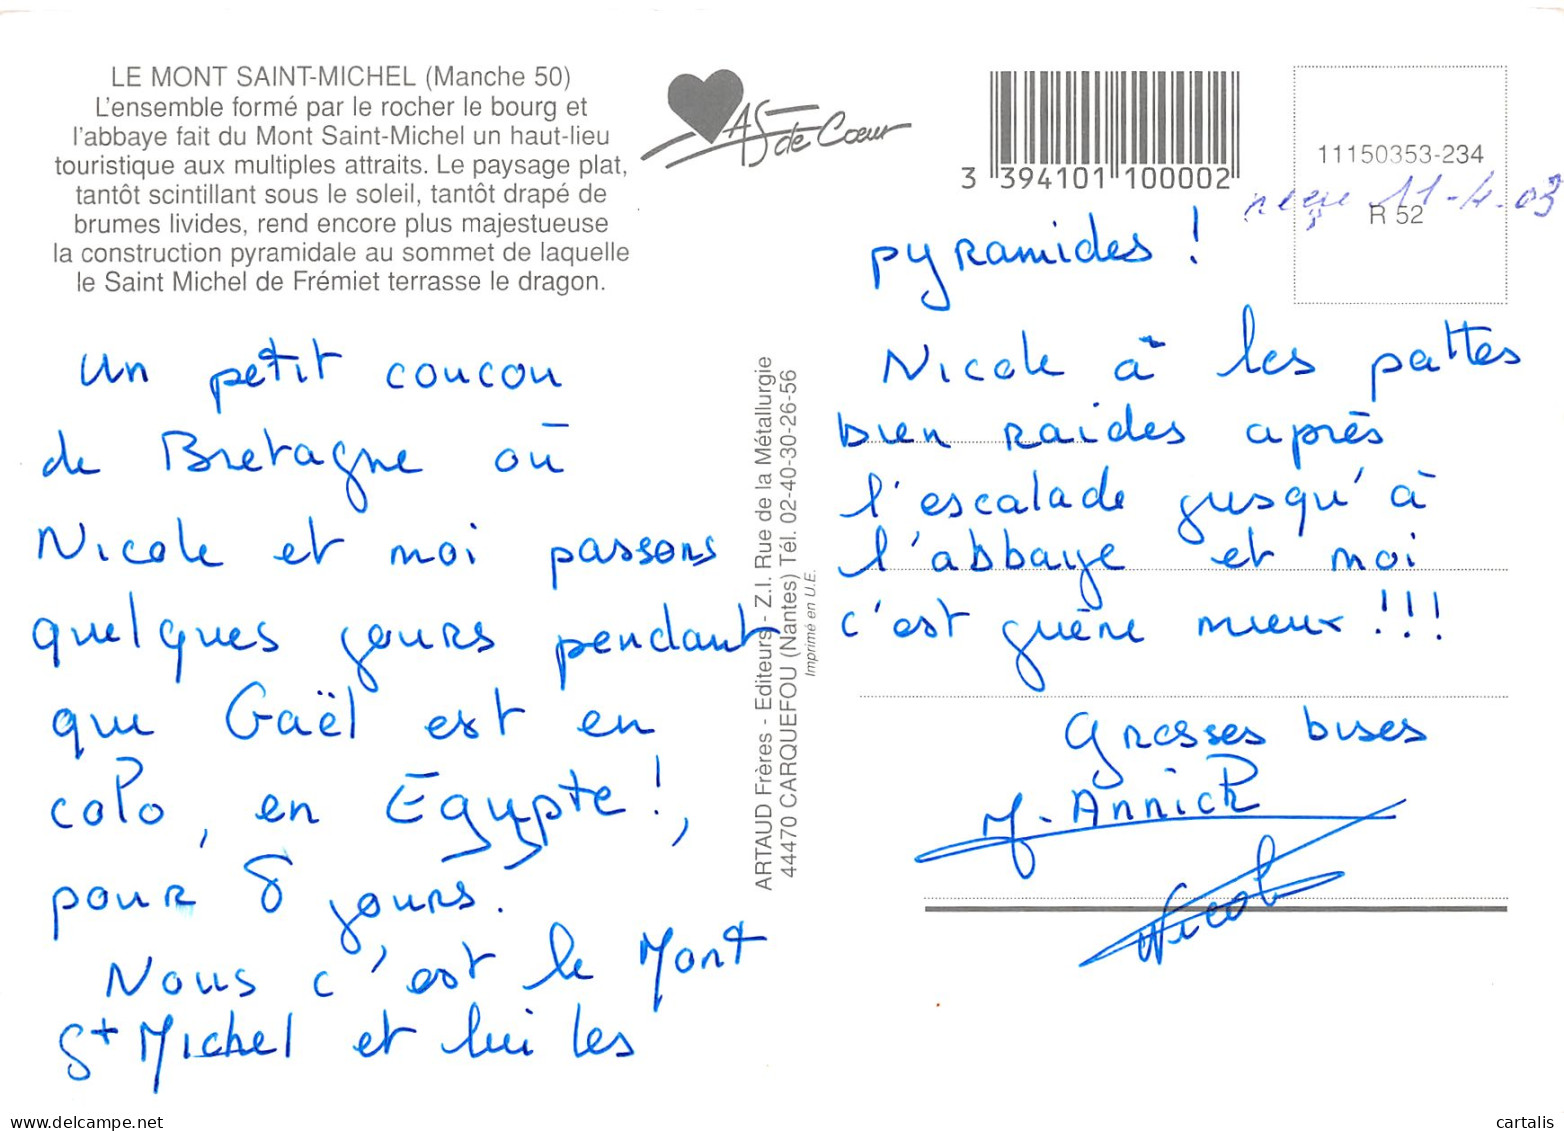 LE MONT SAINT-MICHEL (Manche 50)
L'ensemble formé par le rocher le bourg et
l'abbaye fait du Mont Saint-Michel un haut-lieu
touristique aux multiples attraits. Le paysage plat,
tantôt scintillant sous le soleil, tantôt drapé de
brumes livides, rend encore plus majestueuse
la construction pyramidale au sommet de laquelle
le Saint Michel de Frémiet terrasse le dragon.
AS de Cœur
3 394101 100002
11150353-234
R 52
11-4-03
Un petit coucou
de Bretagne où
Nicole et moi passons
quelques jours pendant
que Gaël est en
colo, en Egypte !,
pour 8 jours.
Nous c'est le Mont
St Michel et lui les
ARTAUD Frères - Editeurs - Z.I. Rue de la Métallurgie
44470 CARQUEFOU (Nantes) Tél. 02-40-30-26-56
Imprimé en U.E.
pyramides !
Nicole à les pattes
bien raides après
l'escalade jusqu'à
l'abbaye et moi
c'est guère mieux !!!
Grosses bises
M. Annick
Nicole
www.delcampe.net
cartalis